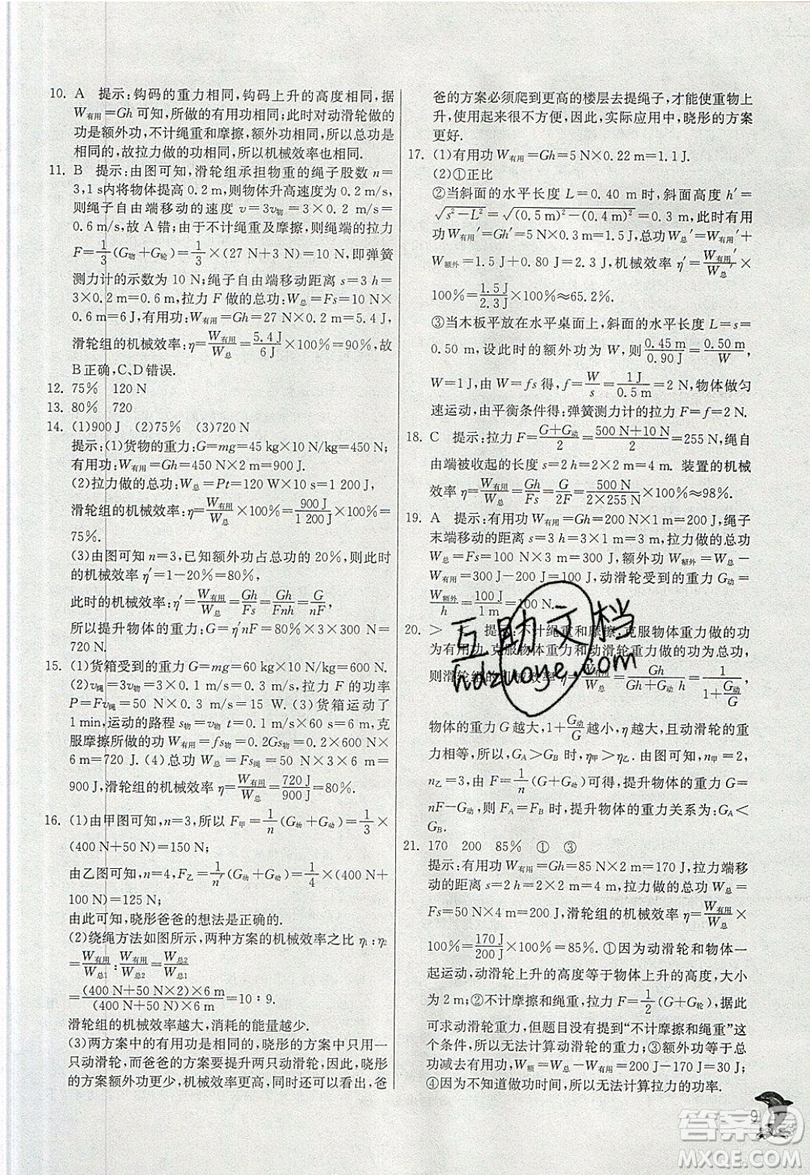 10. A 提示:钩码的重力相同,钩码上升的高度相同,根
据 W有用=Gh 可知,所做的有用功相同;此时对动滑轮做
功是额外功,不计绳重和摩擦,额外功相同,所以总功也
是相同的,故拉力做的功相同,所以机械效率也相同.
11. B 提示:由图可知,滑轮组承担物重的绳子股数 n=
3,1 s内将物体提高 0.2 m,则物体升高的速度为 0.2 m/s,
则绳子自由端移动的速度 v=3v物=3×0.2 m/s=
0.6 m/s,故 A 错;由于不计绳重及摩擦,则绳端的拉力
F=1/3(G物+G轮)=1/3×(27 N+3 N)=10 N,即弹簧
测力计的示数为 10 N;绳子自由端移动距离 s=3 h=
3×0.2 m=0.6 m,拉力 F 做的总功:W总=Fs=10 N×
0.6 m=6 J,有用功:W有用=Gh=27 N×0.2 m=5.4 J,
滑轮组的机械效率:η=W有用/W总=5.4 J/6 J×100%=90%,故
B 正确,C、D 错误.
12. 75% 120 N
13. 80% 720
14. (1)900 J (2)75% (3)720 N
提示:(1)货物的重力:G=mg=45 kg×10 N/kg=450 N,
有用功:W有用=Gh=450 N×2 m=900 J.
(2)拉力做的总功:W总=Pt=120 W×10 s=1 200 J,
滑轮组的机械效率:η=W有用/W总=900 J/1 200 J×100%=
75%.
(3)由图可知 n=3,已知额外功占总功的 20%,则此时
的机械效率 η′=1-20%=80%,
此时的机械效率:η′=W有用/W总=Gh/Fs=Gh/Fnh=G/nF,
所以提升物体的重力:G=η′nF=80%×3×300 N=
720 N.
15. (1)货箱受到的重力 G=mg=60 kg×10 N/kg=600 N.
(2)v绳=3v物=3×0.1 m/s=0.3 m/s,拉力 F 的功率
P=Fv绳=300 N×0.3 m/s=90 W. (3)货箱运动了
1 min,运动的路程 s物=v物t=0.1 m/s×60 s=6 m,克
服摩擦做的功=fs物=0.2Gs物=0.2×600 N×6 m
=720 J. (4)滑轮组的机械效率 η=W有用/W总=720 J/900 J×
100%=80%.
16. (1)由甲图可知,n=3,所以 F甲=1/n(G物+G动)=1/3×
(400 N+50 N)=150 N;
由乙图可知,n=4,F乙=1/n′(G物+G动′)=1/4×
(400 N+100 N)=125 N;
由此可知,晓彤爸爸的想法是正确的.
(2)绕绳方法如图所示,两种方案的机械效率之比 η1:η2
=W有用/W总1:W有用/W总2=W总2/W总1
=(400 N+50 N×2)×6 m/(400 N+50 N)×6 m=10:9.
滑轮组的机械效率越大,消耗的能量越少.
(3)两方案中的有用功是相同的,晓彤的方案中只用一
只动滑轮,而爸爸的方案要提升两只动滑轮,所以晓彤
的方案额外功更少,机械效率更高,同时还可以看出,爸
爸的方案必须爬到更高的楼层去提绳子,才能使重物上
升,使用起来很不方便,因此,实际应用中,晓彤的方案
更好.
17. (1)有用功 W有用=Gh=5 N×0.22 m=1.1 J.
(2)①正比
②当斜面的水平长度 L=0.40 m 时,斜面高度 h′=
√s²-L²=√(0.5 m)²-(0.4 m)²=0.3 m,此时有用功
W有用′=Gh′=5 N×0.3 m=1.5 J,总功 W总′=W有用′
+W额外=1.5 J+0.8 J=2.3 J,机械效率 η′=W有用′/W总′×
100%=1.5 J/2.3 J×100%≈65.2%.
③当木板平放在水平桌面上,斜面的水平长度 L=s=
0.50 m,设此时的额外功 W,则有 0.45 m/0.90 J=0.50 m/W,
W=1 J,由 W=fs 得,摩擦力 f=W/s=1 J/0.5 m=2 N,物体做匀
速运动,由平衡条件得:弹簧测力计的拉力 F=f=2 N.
18. C 提示:拉力 F=G+G动/2=500 N+10 N/2=255 N,绳自
由端被收起的长度 s=2h=2×2 m=4 m. 装置的机械
效率 η=W有用/W总=Gh/Fs=G/2F=500 N/2×255 N×100%≈98%.
19. A 提示:有用功 W有用=Gh=200 N×1 m=200 J,绳子
末端移动的距离 s=3 h=3×1 m=3 m,拉力做的总功
W总=Fs=100 N×3 m=300 J,额外功 W额外=W总-
W有用=300 J-200 J=100 J,动滑轮受到的重力 G动=
W额外/h=100 J/1 m=100 N.
20. > < 提示:不计绳重和摩擦,克服物体重力做的功
为有用功,克服物体重力和动滑轮重力做的功为总功,
则滑轮组的机械效率 η=W有用/W总=Gh/Gh+G动h=1/1+G动/G,
物体的重力 G 越大,1+G动/G越小,η越大,且动滑轮的重
力相等,所以,G甲>G乙 时,η甲>η乙. 由图可知,n甲=2,
n乙=3,根据 F=1/n(G+G动)可得,提升物体的重力 G=
nF-G动,所以 FA=FB 时,提升物体的重力关系为:GA<
GB.
21. 170 200 85% ① ③
提示:有用功 W有用=Gh=85 N×2 m=170 J,拉力端移
动的距离 s=2h=2×2 m=4 m,拉力做的总功 W总=
Fs=50 N×4 m=200 J,滑轮组的机械效率 η=W有用/W总×
100%=170 J/200 J×100%=85%. ①因为动滑轮和物体一
起运动,动滑轮上升的高度等于物体上升的高度,大小
为 2 m;②不计摩擦和绳重,拉力 F=1/2(G+G轮),据此
可求动滑轮重力,但因题目没有提到“不计摩擦和绳重”这
个条件,所以无法计算动滑轮的重力;③额外功等于总
功减去有用功,W额外=W总-W有用=200 J-170 J=30 J;
④由于不知道做功时间,所以无法计算拉力的功率.
互助文档
hdzuoye.com
9
答案圈
MXQE.COM